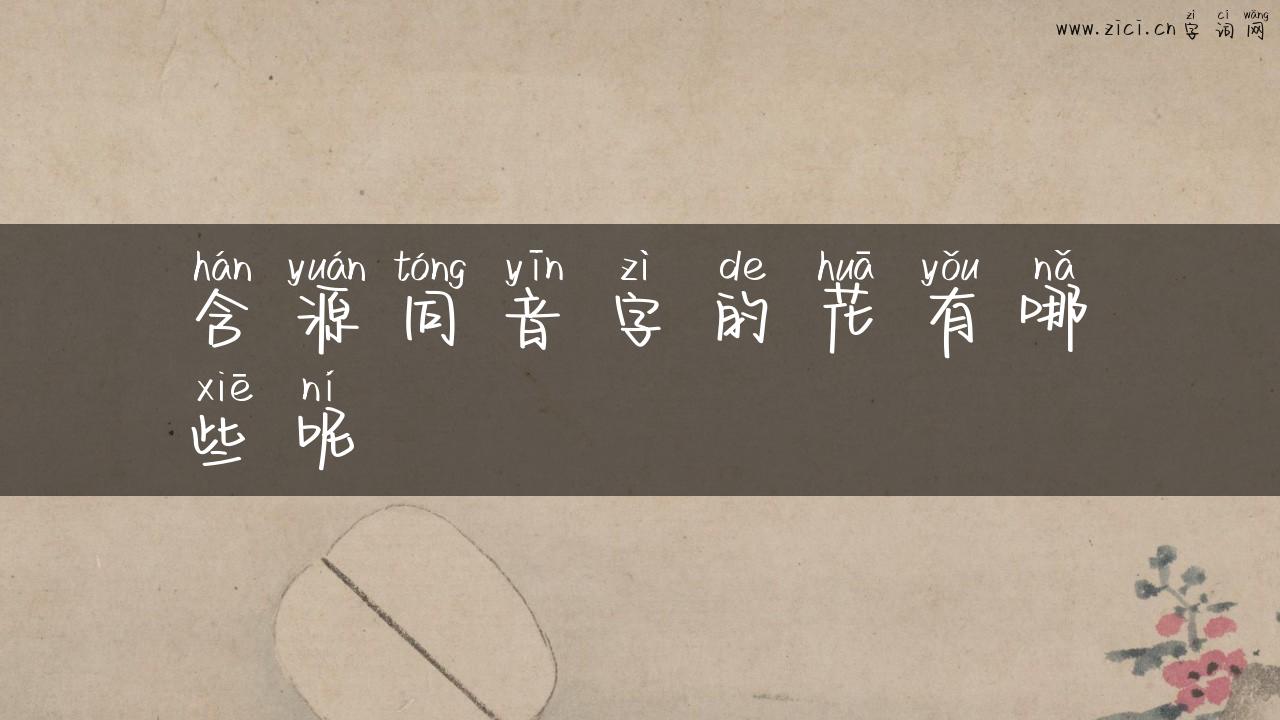 zì cí wǎng
www.zici.cn 字词网
hán yuán tóng yīn zì de huā yǒu nǎ
含源同音字的花有哪
xiē ní
些呢